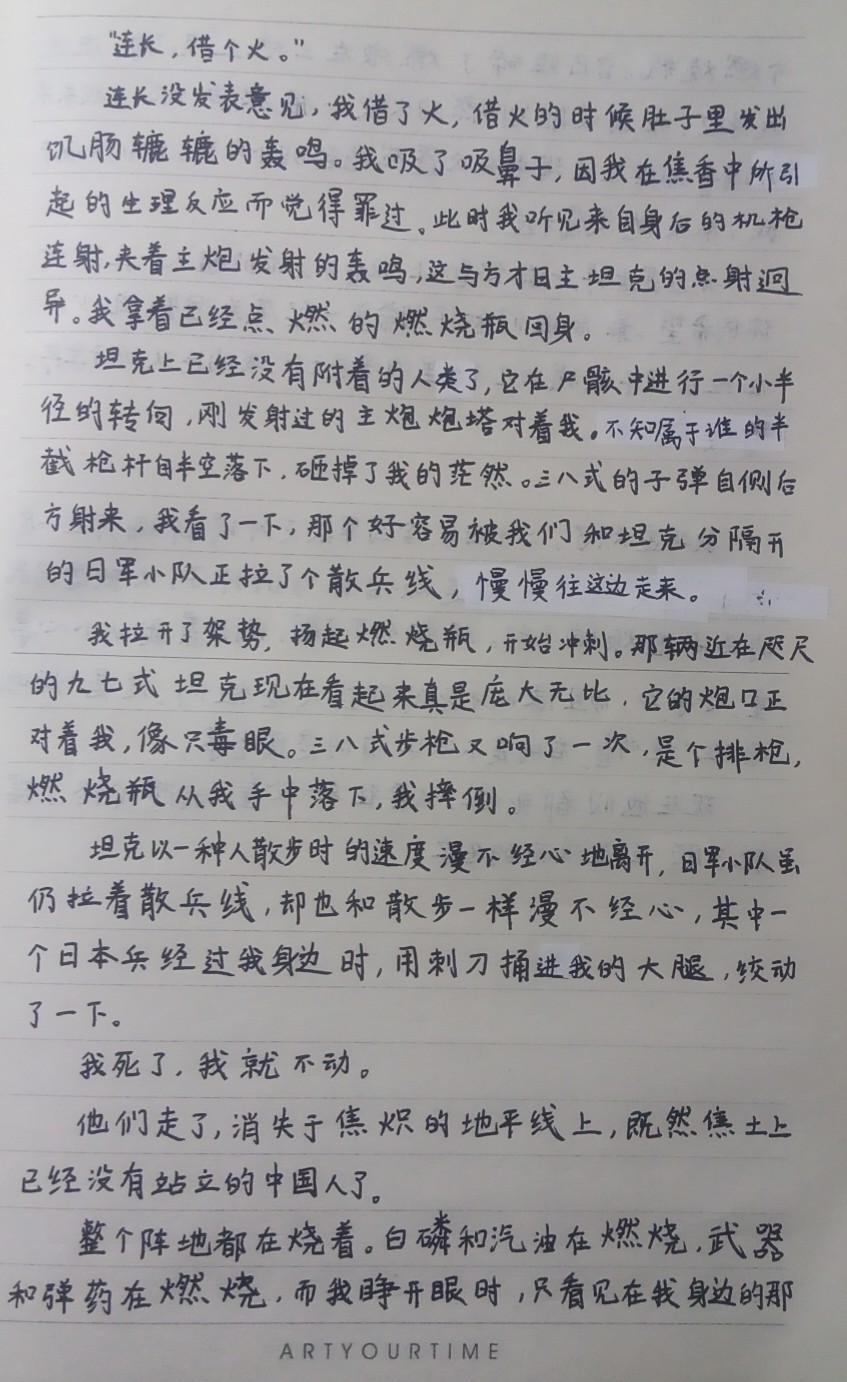 “连长，借个火。”
连长没发表意见，我借了火，借火的时候肚子里发出
饥肠辘辘的轰鸣。我吸了吸鼻子，因我在焦香中所引
起的生理反应而觉得罪过。此时我听见来自身后的机枪
连射，夹着主炮发射的轰鸣，这与方才日主坦克的点射迥
异。我拿着已经点燃的燃烧瓶回身。
坦克上已经没有附着的人类了，它在尸骸中进行一个小半
径的转向，刚发射过的主炮炮塔对着我。不知属于谁的半
截枪杆自半空落下，砸掉了我的茫然。三八式的子弹自侧后
方射来，我看了一下，那个好容易被我们和坦克分隔开
的日军小队正拉了个散兵线，慢慢往这边走来。
我拉开了架势，扬起燃烧瓶，开始冲刺。那辆近在咫尺
的九七式坦克现在看起来真是庞大无比，它的炮口正
对着我，像只毒眼。三八式步枪又响了一次，是个排枪，
燃烧瓶从我手中落下，我摔倒。
坦克以一种人散步时的速度漫不经心地离开，日军小队虽
仍拉着散兵线，却也和散步一样漫不经心，其中一
个日本兵经过我身边时，用刺刀捅进我的大腿，绞动
了一下。
我死了，我就不动。
他们走了，消失于焦炽的地平线上，既然焦土上
已经没有站立的中国人了。
整个阵地都在烧着。白磷和汽油在燃烧，武器
和弹药在燃烧，而我睁开眼时，只看见在我身边的那
ARTYOURTIME